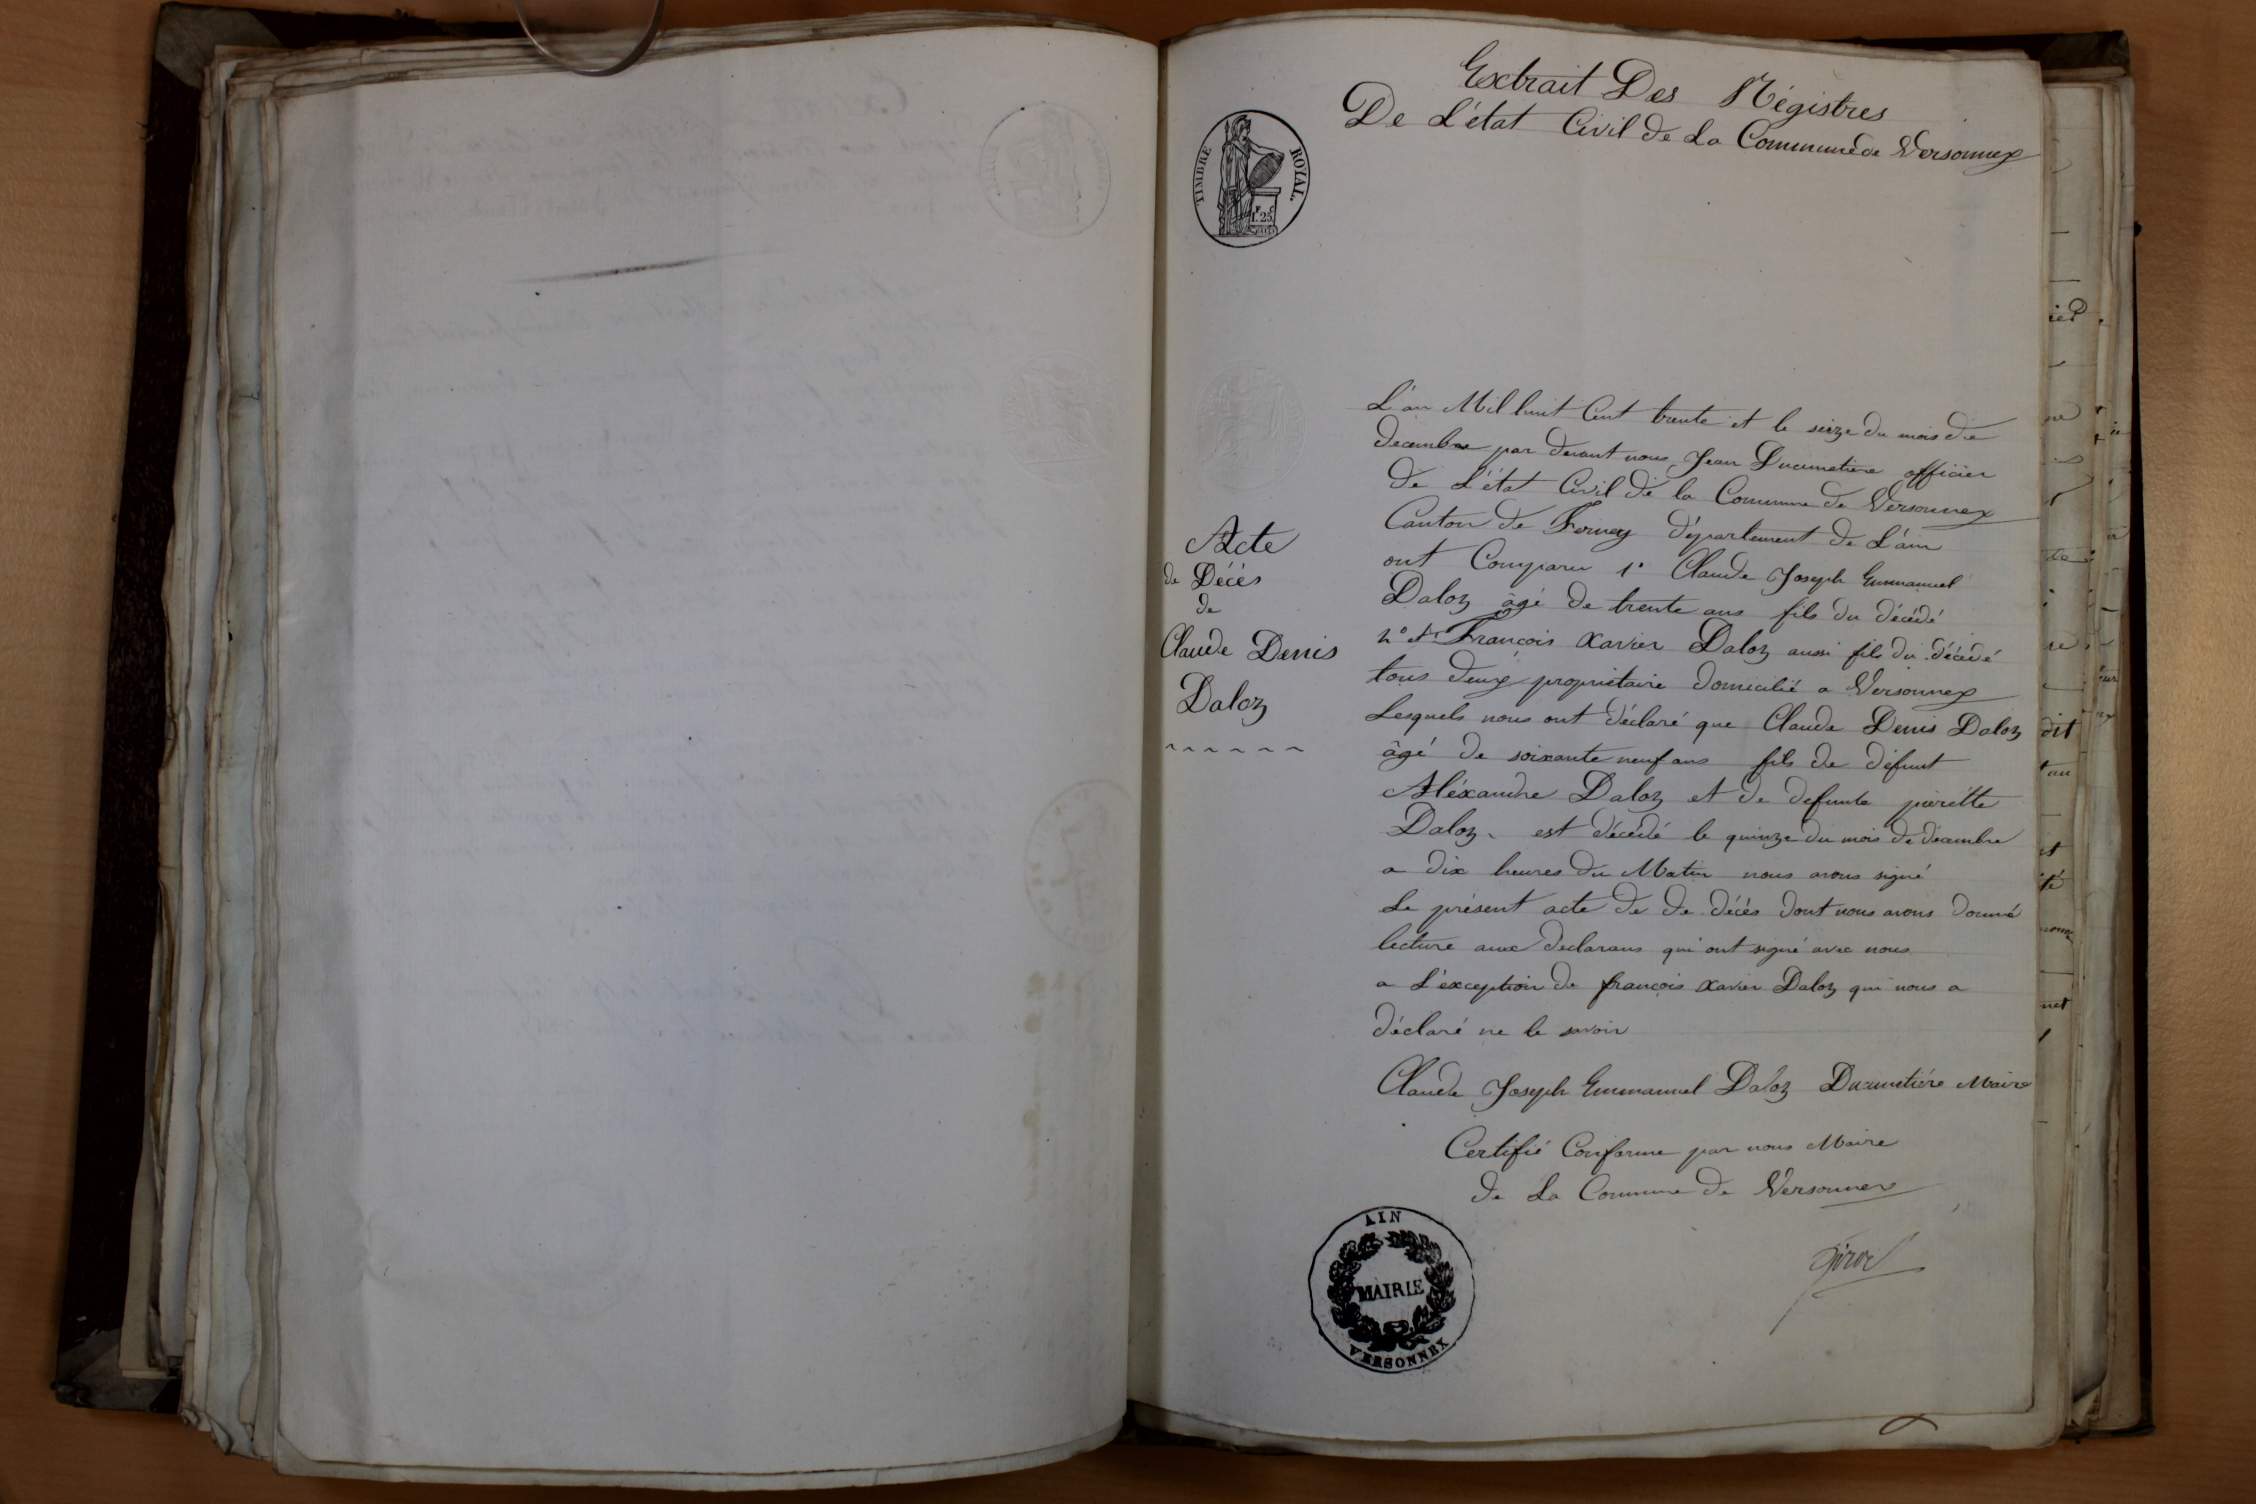 Extrait Des Régistres
De L'état Civil de La Commune de Versonnex
TIMBRE ROYAL.
1 F. 25 C.
L'an Mil huit Cent trente et le seize du mois de
decembre par devant nous Jean Ducimetière officier
de L'état Civil de la Commune de Versonnex
Canton de Ferney département de L'ain
ont Comparu 1° Claude Joseph Emmanuel
Daloz âgé de trente ans fils du décédé
2° Sr François Xavier Daloz aussi fils du décédé
tous deux propriétaire domicilié a Versonnex
Lesquels nous ont déclaré que Claude Denis Daloz
âgé de soixante neuf ans fils de défunt
Aléxandre Daloz et de defunte pierrette
Daloz. est décédé le quinze du mois de décembre
a dix heures du Matin nous avons signé
Le présent acte de de décés dont nous avons donné
lecture aux declarans qui ont signé avec nous
a L'éxception de françois Xavier Daloz qui nous a
déclaré ne le savoir
Claude Joseph Emmanuel Daloz Ducimetiére Maire
Certifié Conforme par nous Maire
de La Commune de Versonnex
Acte
de Décés
de
Claude Denis
Daloz
AIN
MAIRIE
VERSONNEX